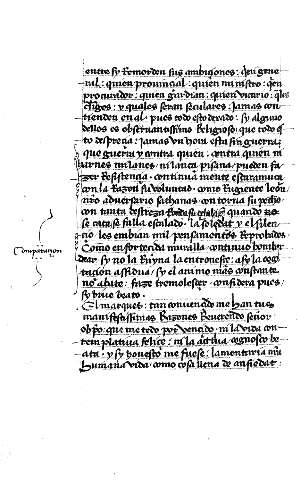 entre sy Remorden sus ambiçiones: quien gene
ral: quien provinçial: quien ministro: quien
procurador: quien gardian: quien vicario: quales
clerigos: y quales seran seculares: Jamas con
tienden en al: pues todo esto dexado: sy alguno
dellos es observantissimo Religioso: que todo esto
despreçia: Jamas un hora esta sin guerra:
que guerra y contra quien: contra quien ni
arneses milaneses: ni lança pisana: pueden fa
zer Resistençia: continua mueve escaramuça
con la Razon su voluntad: como Rugiente leon
nuestro adversario sathanas con torna su pecho
con tanta destreza quando no
se cata se falla escalado: la soledat y el silen
çio les embian mil pensamientos Reprobados
Como en fortalecida muralla continuo bombar
dear sy no la Ruyna la entronesçe: asy la cogi
taçion assidua: sy el animo mas constante
no abate: faze tremolesçer: considera pues
sy bive beato.
El marques: tan convençido me han tus
manifestissimas Razones Reverendo señor
obispo: que me todo por vençido: ni la vida con
templativa feliçe: ni la activa cognosco be
ata: y sy honesto me fuese: lamentaria mi
humana vida como cosa llena de ansiedat:
Comparaçion